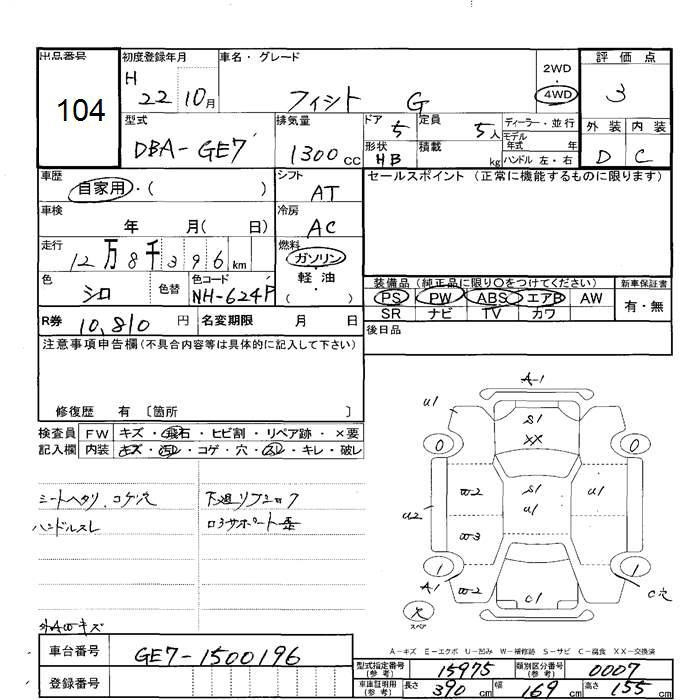 出品番号 初度登録年月 車名・グレード 2WD 評価点
104
H 22 10月 フィット G 4WD 3
型式 排気量 ドア 定員 ディーラー・並行 外装 内装
DBA-GE7 1300cc 5 5人 モデル年式 年
形状 積載
HB kg ハンドル 左・右 D C
車歴 シフト セールスポイント (正常に機能するものに限ります)
自家用・( ) AT
車検 冷房
年 月( 日) AC
走行 燃料
12万8千396km ガソリン
軽油
( )
色 色替 色コード 装備品 (純正品に限り○をつけてください) 新車保証書
シロ NH-624P PS PW ABS エアB AW 有・無
SR ナビ TV カワ
R券 10,810円 名変期限 月 日 後日品
注意事項申告欄(不具合内容等は具体的に記入して下さい)
修復歴 有 〔箇所 〕
検査員 FW キズ・飛石・ヒビ割・リペア跡・×要
記入欄 内装 キズ・汚レ・コゲ・穴・スレ・キレ・破レ
シートヘタリ、コゲ穴
ハンドルスレ
下廻リ
外AWキズ
A-1
U1
S1
XX
0 0
W2 S1 U1
U1
U2
W3
1 1
A1 W2 C1 C穴
スペア
A-キズ E-エクボ U-凹み W-補修跡 S-サビ C-腐食 XX-交換済
車台番号 GE7-1500196
登録番号
型式指定番号(参考) 15975 類別区分番号(参考) 0007
車庫証明用(参考) 長さ 390cm 幅 169cm 高さ 155cm